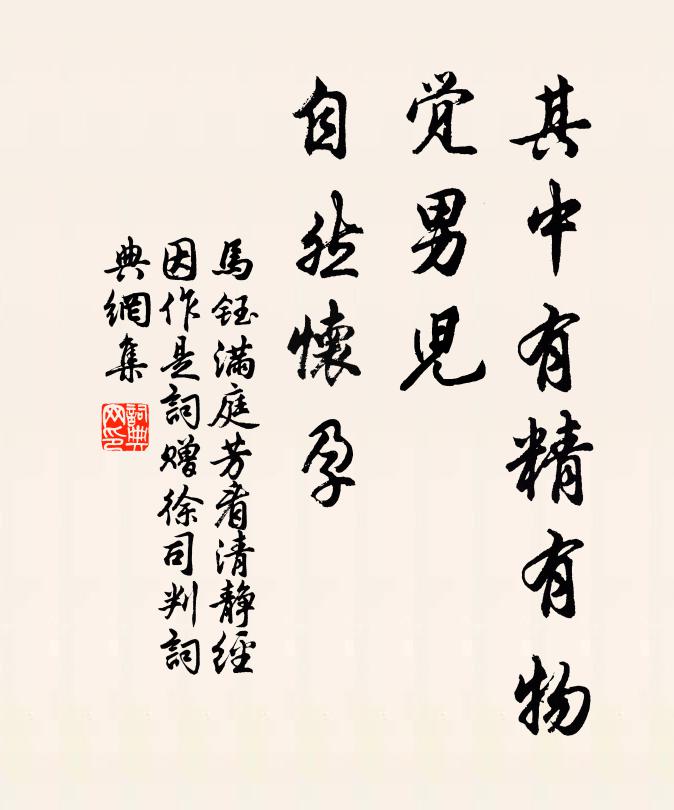 其中有精有物
觉男児
自然懷孕
馬鈺滿庭芳看清靜經
因作是詞贈徐司判詞
典網集
詞典网印